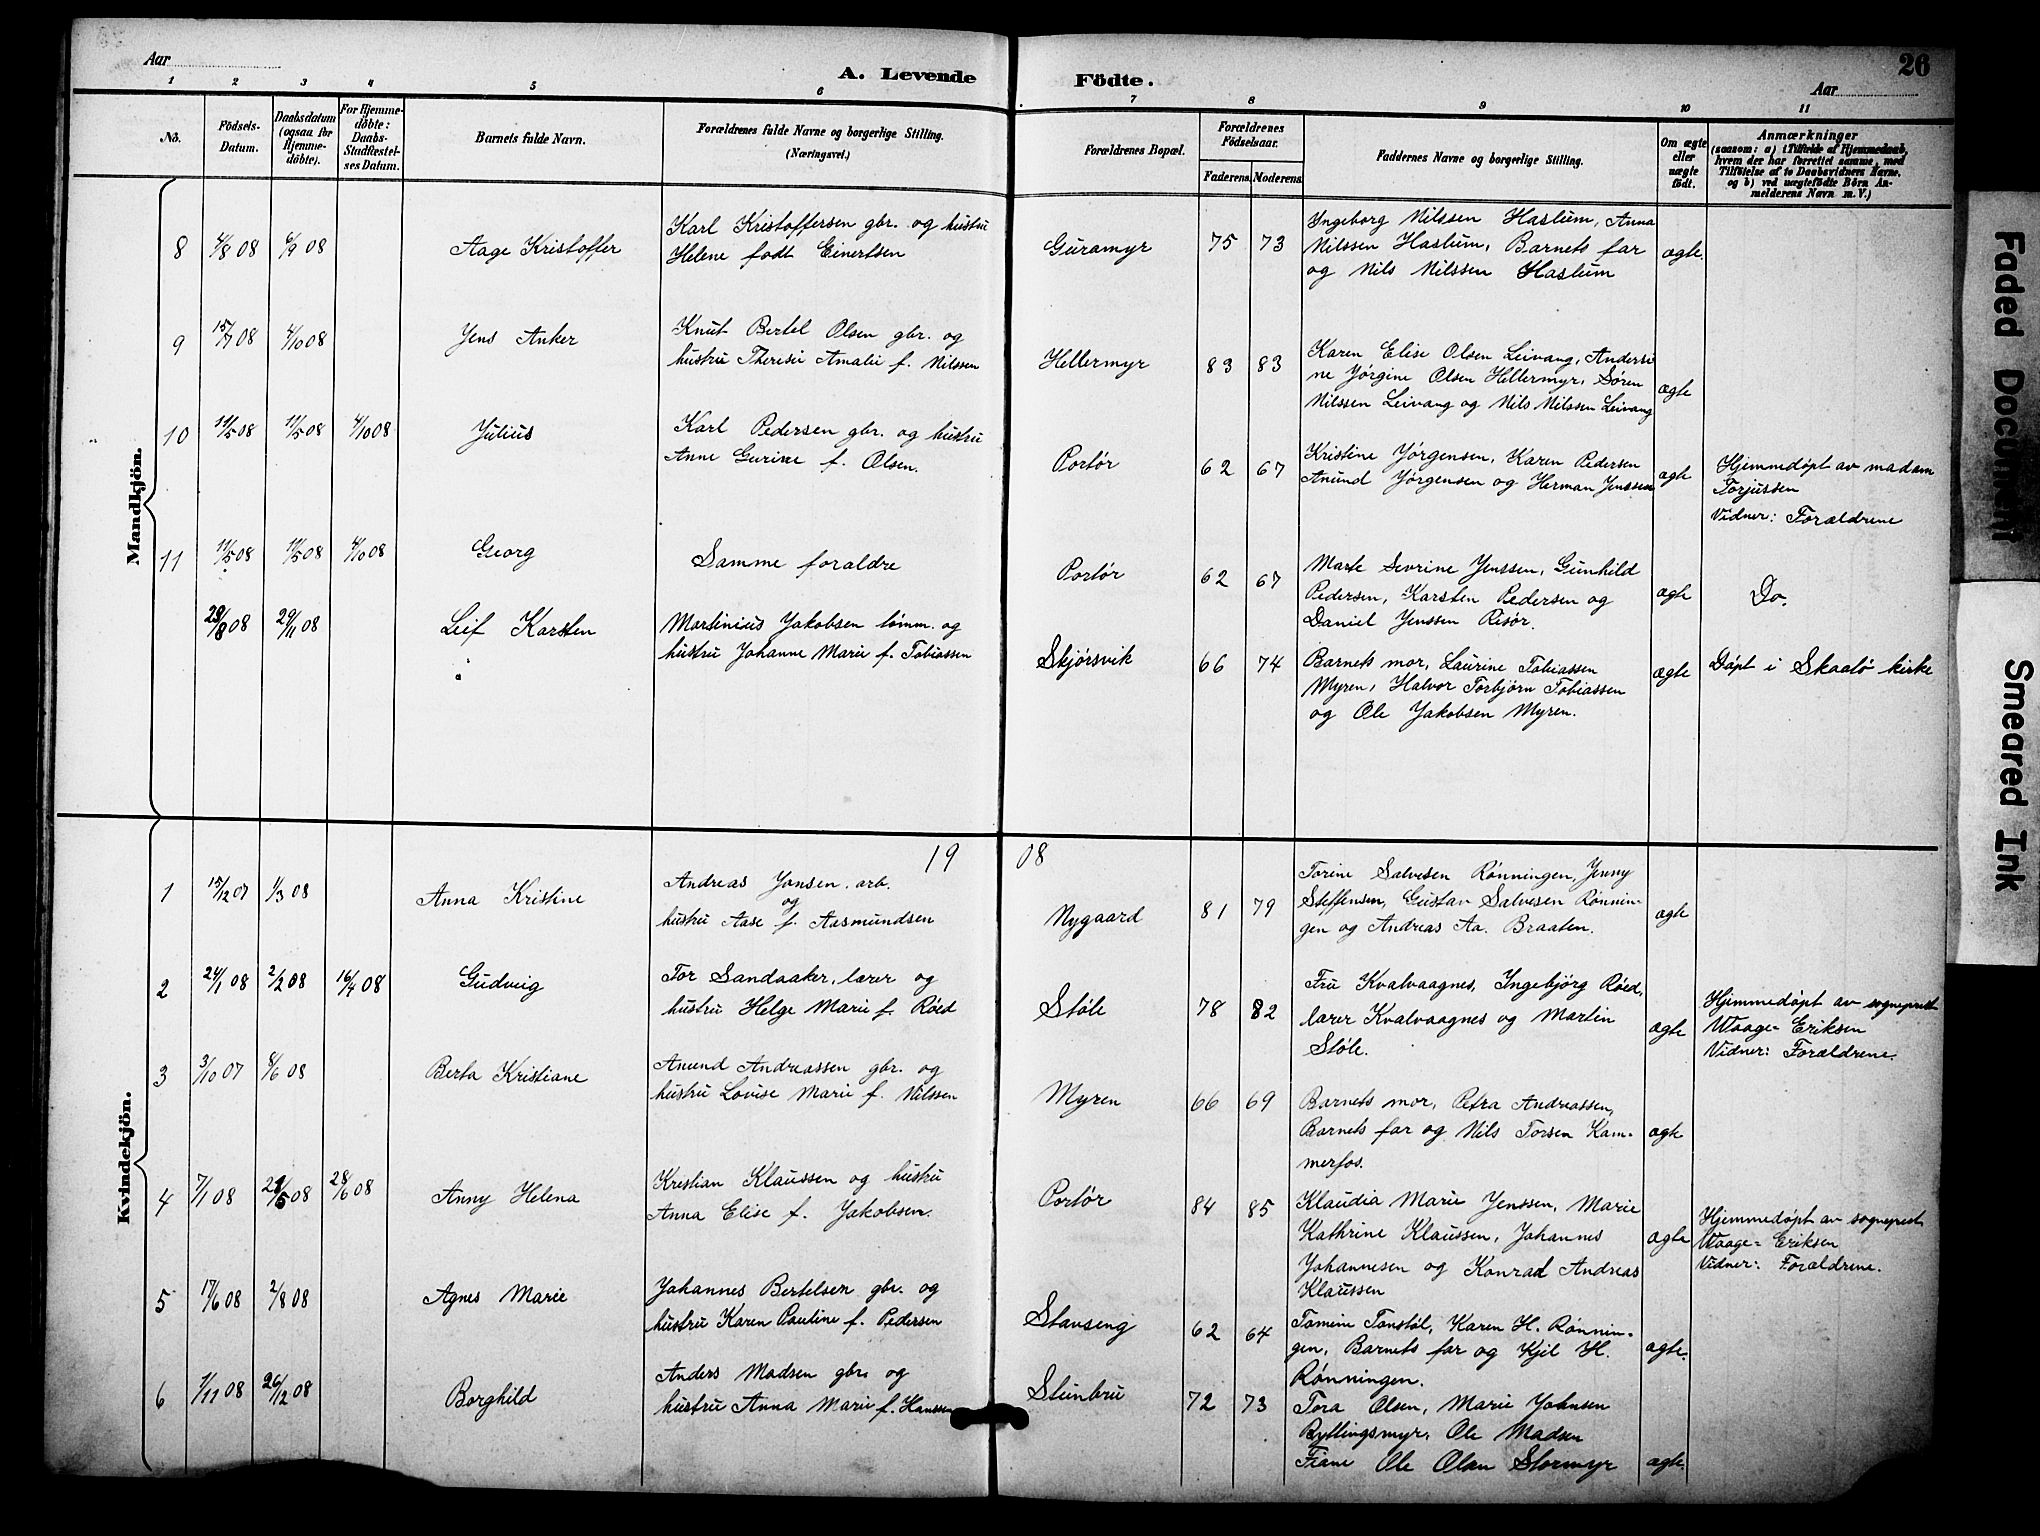 Aar
A. Levende Födte.
Aar
26
1 2 3 4 5 6 7 8 9 10 11
No.
Födsels-Datum.
Daabsdatum (ogsaa for Hjemme-döbte).
For Hjemme-döbte: Daabs-Stadfæstel-ses Datum.
Barnets fulde Navn.
Forældrenes fulde Navne og borgerlige Stilling.
(Næringsvei.)
Forældrenes Bopæl.
Forældrenes Födselsaar.
Faderens. Moderens.
Faddernes Navne og borgerlige Stilling.
Om ægte eller uægte födt.
Anmærkninger
(saasom: a) i Tilfælde af Hjemmedaab, hvem der har forrettet samme, med Tilföielse af to Daabsvidners Navne, og b) ved uægtefödte Börn Anmelderens Navn m. V.)
Mandkjön.
8 4/8 08 6/9 08 Aage Kristoffer
Karl Kristoffersen gbr. og hustru
Helene født Einertsen
Guramyr 75 73
Ingeborg Nilssen Haslum, Anna
Nilssen Haslum, Barnets far
og Nils Nilssen Haslum
ægte.
9 15/7 08 4/10 08 Jens Anker
Knut Bertel Olsen gbr. og
hustru Theresie Amalie f. Nilssen
Hellermyr 83 83
Karen Elise Olsen Leivang, Andersi
ne Jørgine Olsen Hellermyr, Søren
Nilssen Leivang og Nils Nilssen Leivang
ægte
10 11/5 08 11/5 08 4/10 08 Julius
Karl Pedersen gbr. og hustru
Anne Gurine f. Olsen.
Portør 62 67
Kristine Jørgensen, Karen Pedersen
Anund Jørgensen og Herman Jenssen
ægte
Hjemmedøpt av madam
Torjussen
Vidner: Forældrene
11 11/5 08 11/5 08 4/10 08 Georg
Samme forældre
Portør 62 67
Marte Sevrine Jenssen, Gunhild
Pedersen, Karsten Pedersen og
Daniel Jenssen Risør.
ægte
Do.
29/8 08 29/11 08 Leif Karsten
Martinius Jakobsen tømm. og
hustru Johanne Marie f. Tobiassen
Skjørsvik 66 74
Barnets mor, Laurine Tobiassen
Myren, Halvor Torbjørn Tobiassen
og Ole Jakobsen Myren.
ægte
Døpt i Skaatø kirke
1908
Kvindekjön.
1 15/12 07 1/3 08 Anna Kristine
Andreas Jonsen. arb.
og
hustru Aase f. Aasmundsen
Nygaard 81 79
Torine Salvesen Rønningen, Jenny
Steffensen, Gustav Salvesen Rønnin-
gen og Andreas Aa. Braaten.
ægte
2 24/1 08 2/2 08 16/4 08 Gudveig
Tor Sandaaker, lærer og
hustru Helge Marie f. Røed
Støle 78 82
Fru Kvalvaagnes, Ingebjørg Røed,
lærer Kvalvaagnes og Martin
Støle.
ægte
Hjemmedøpt av sogneprest
Waage-Eriksen
Vidner: Forældrene.
3 3/10 07 8/6 08 Berta Kristiane
Anund Andreassen gbr. og
hustru Lovise Marie f. Nilssen
Myren 66 69
Barnets mor, Petra Andreassen,
Barnets far og Nils Torsen Kam-
merfos.
ægte
4 7/1 08 21/5 08 28/6 08 Anny Helena
Kristian Klaussen og hustru
Anna Elise f. Jakobsen.
Portør 84 85
Klaudia Marie Jenssen, Marie
Kathrine Klaussen, Johannes
Johannesen og Konrad Andreas
Klaussen
ægte
Hjemmedøpt av sogneprest
Waage-Eriksen
Vidner: Forældrene.
5 17/6 08 2/8 08 Agnes Marie
Johannes Bertelsen gbr. og
hustru Karen Pauline f. Pedersen
Stavseng 62 64
Tomine Tonstøl, Karen H. Rønnin-
gen, Barnets far og Kjel H.
Rønningen.
ægte.
6 1/11 08 26/12 08 Borghild
Anders Madsen gbr. og
hustru Anna Marie f. Hanssen
Stenbru 72 73
Tora Olsen, Marie Johnsen
Byttingsmyr, Ole Madsen
Fiane Ole Olsen Stormyr
ægte.
Faded Document
Smeared Ink